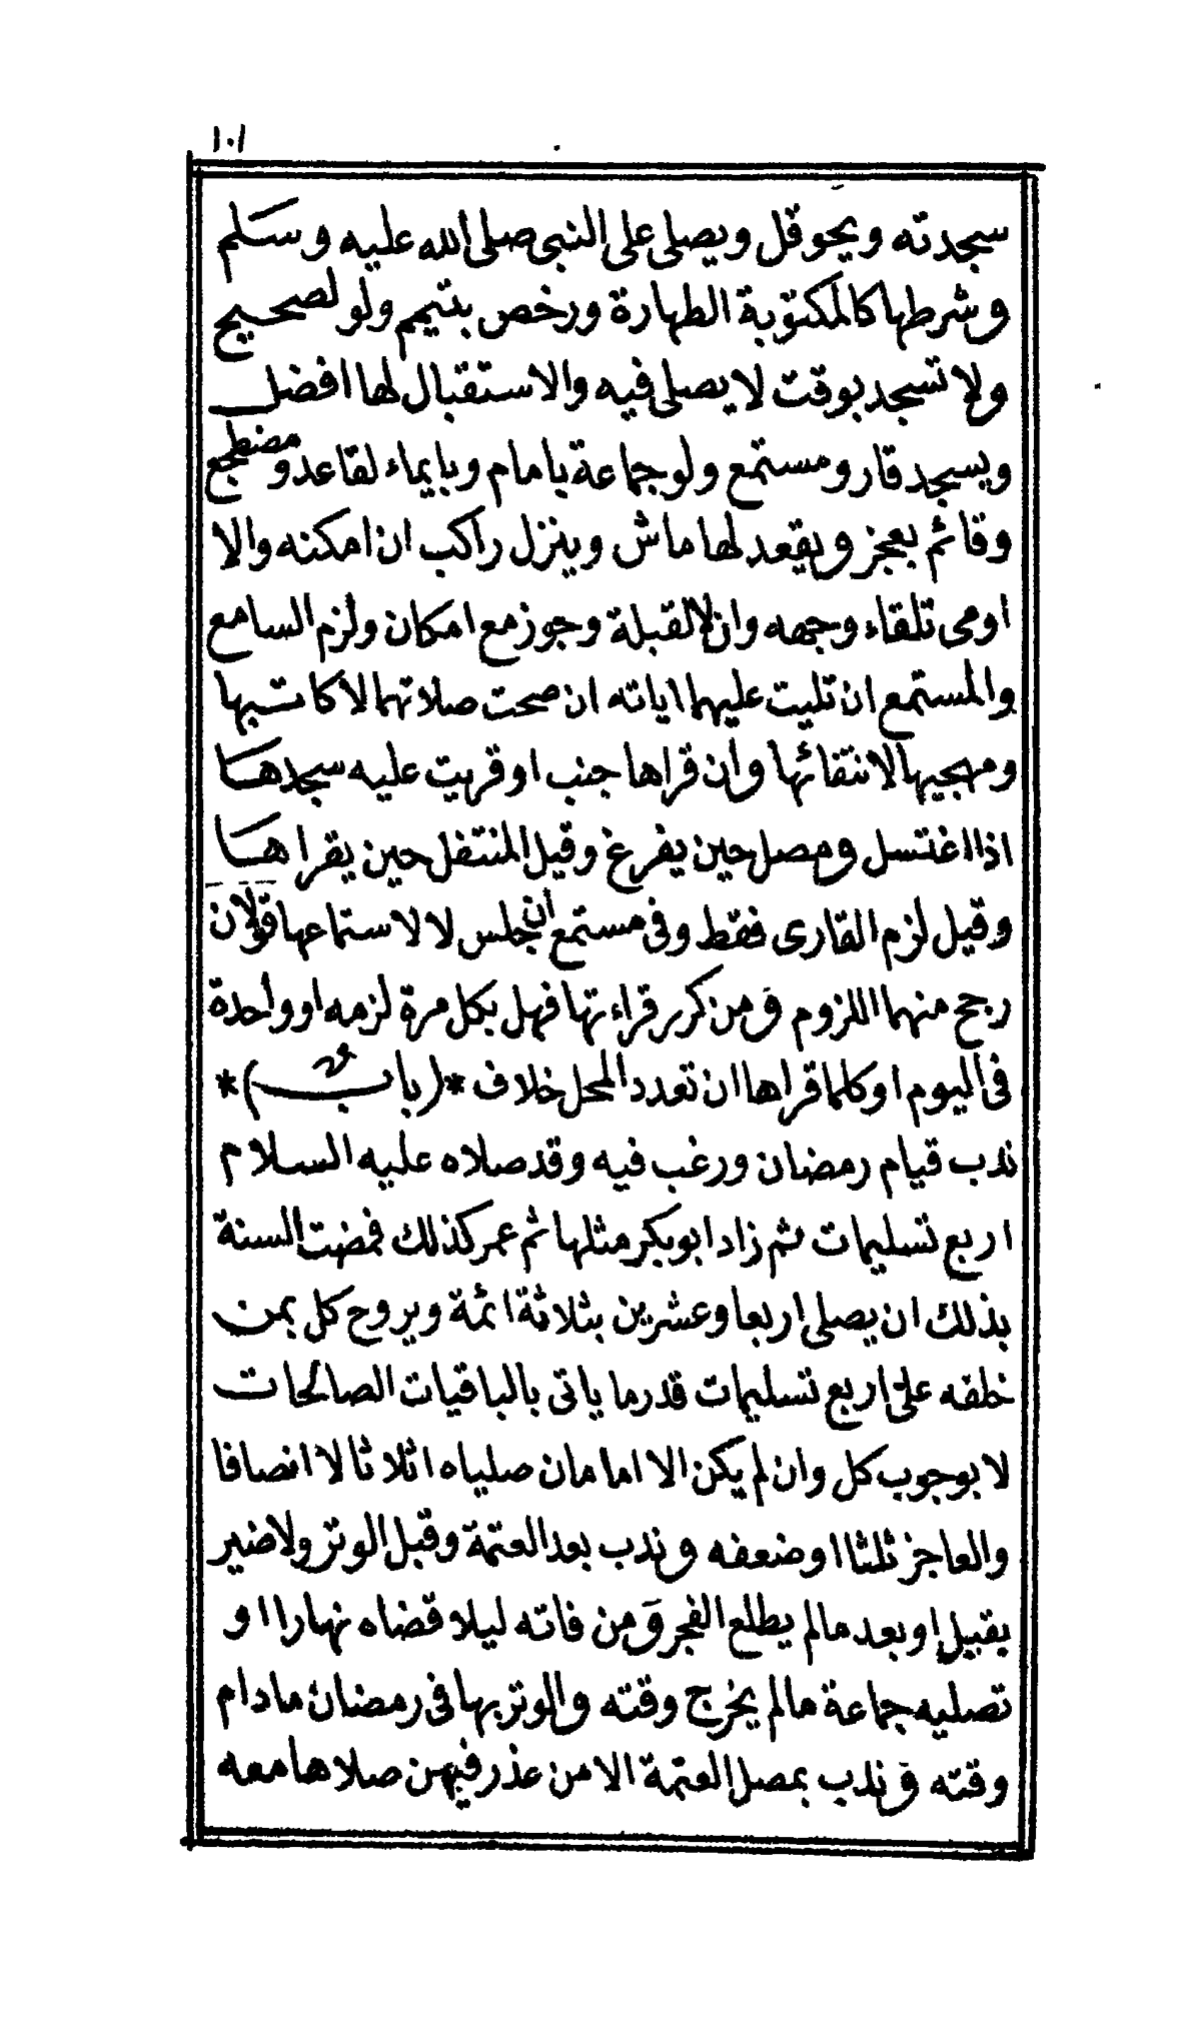 ١٠١
سجدته ويحوقل ويصلى على النبى صلى الله عليه وسلم
وشرطها كالمكتوبة الطهارة ورخص بتيمم ولو لصحيح
ولا تسجد بوقت لا يصلى فيه والاستقبال لها افضل
ويسجد قار ومستمع ولو جماعة بامام وبايماء لقاعد ومضطجع
وقائم بعجز ويقعد لها ماش وينزل راكب ان امكنه والا
اومى تلقاء وجهه وان لا لقبلة وجوز مع امكان ولزم السامع
والمستمع ان تليت عليهما اياته ان صحت صلاتهما لا كاتبها
ومهجيها لانتقائها وان قراها جنب او قريت عليه سجدها
اذا اغتسل ومصل حين يفرغ وقيل المنتفل حين يقراها
وقيل لزم القارى فقط وفى مستمع ان جلس لا لاستماعها قولان
رجح منهما اللزوم ومن كرر قراءتها فهل بكل مرة لزمه او واحدة
فى اليوم او كلما قراها ان تعدد المحل خلاف *(باب)*
ندب قيام رمضان ورغب فيه وقد صلاه عليه السلام
اربع تسليمات ثم زاد ابو بكر مثلها ثم عمر كذلك فمضت السنة
بذلك ان يصلى اربعا وعشرين بثلاثة ائمة ويروح كل بمن
خلفه على اربع تسليمات قدر ما ياتى بالباقيات الصالحات
لا بوجوب كل وان لم يكن الا امامان صلياه اثلاثا لا انصافا
والعاجز ثلثا او ضعفه وندب بعد العتمة وقبل الوتر ولا ضير
بقبيل او بعد ما لم يطلع الفجر ومن فاته ليلا قضاه نهارا او
تصليه جماعة ما لم يخرج وقته والوتر بها فى رمضان ما دام
وقته وندب بمصل العتمة الا من عذر فيهن صلاها معه